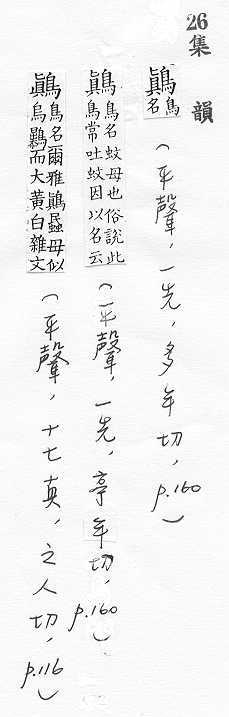 26集韻
鷏鳥名（平聲，一先，多年切，p.160）
鷏鳥名蚊母也俗說此鳥常吐蚊因以名云（平聲，一先，亭年切，p.160）．
鷏鳥名爾雅鷏蟁母似烏鸔而大黃白雜文（平聲，十七真，之人切，p.116）